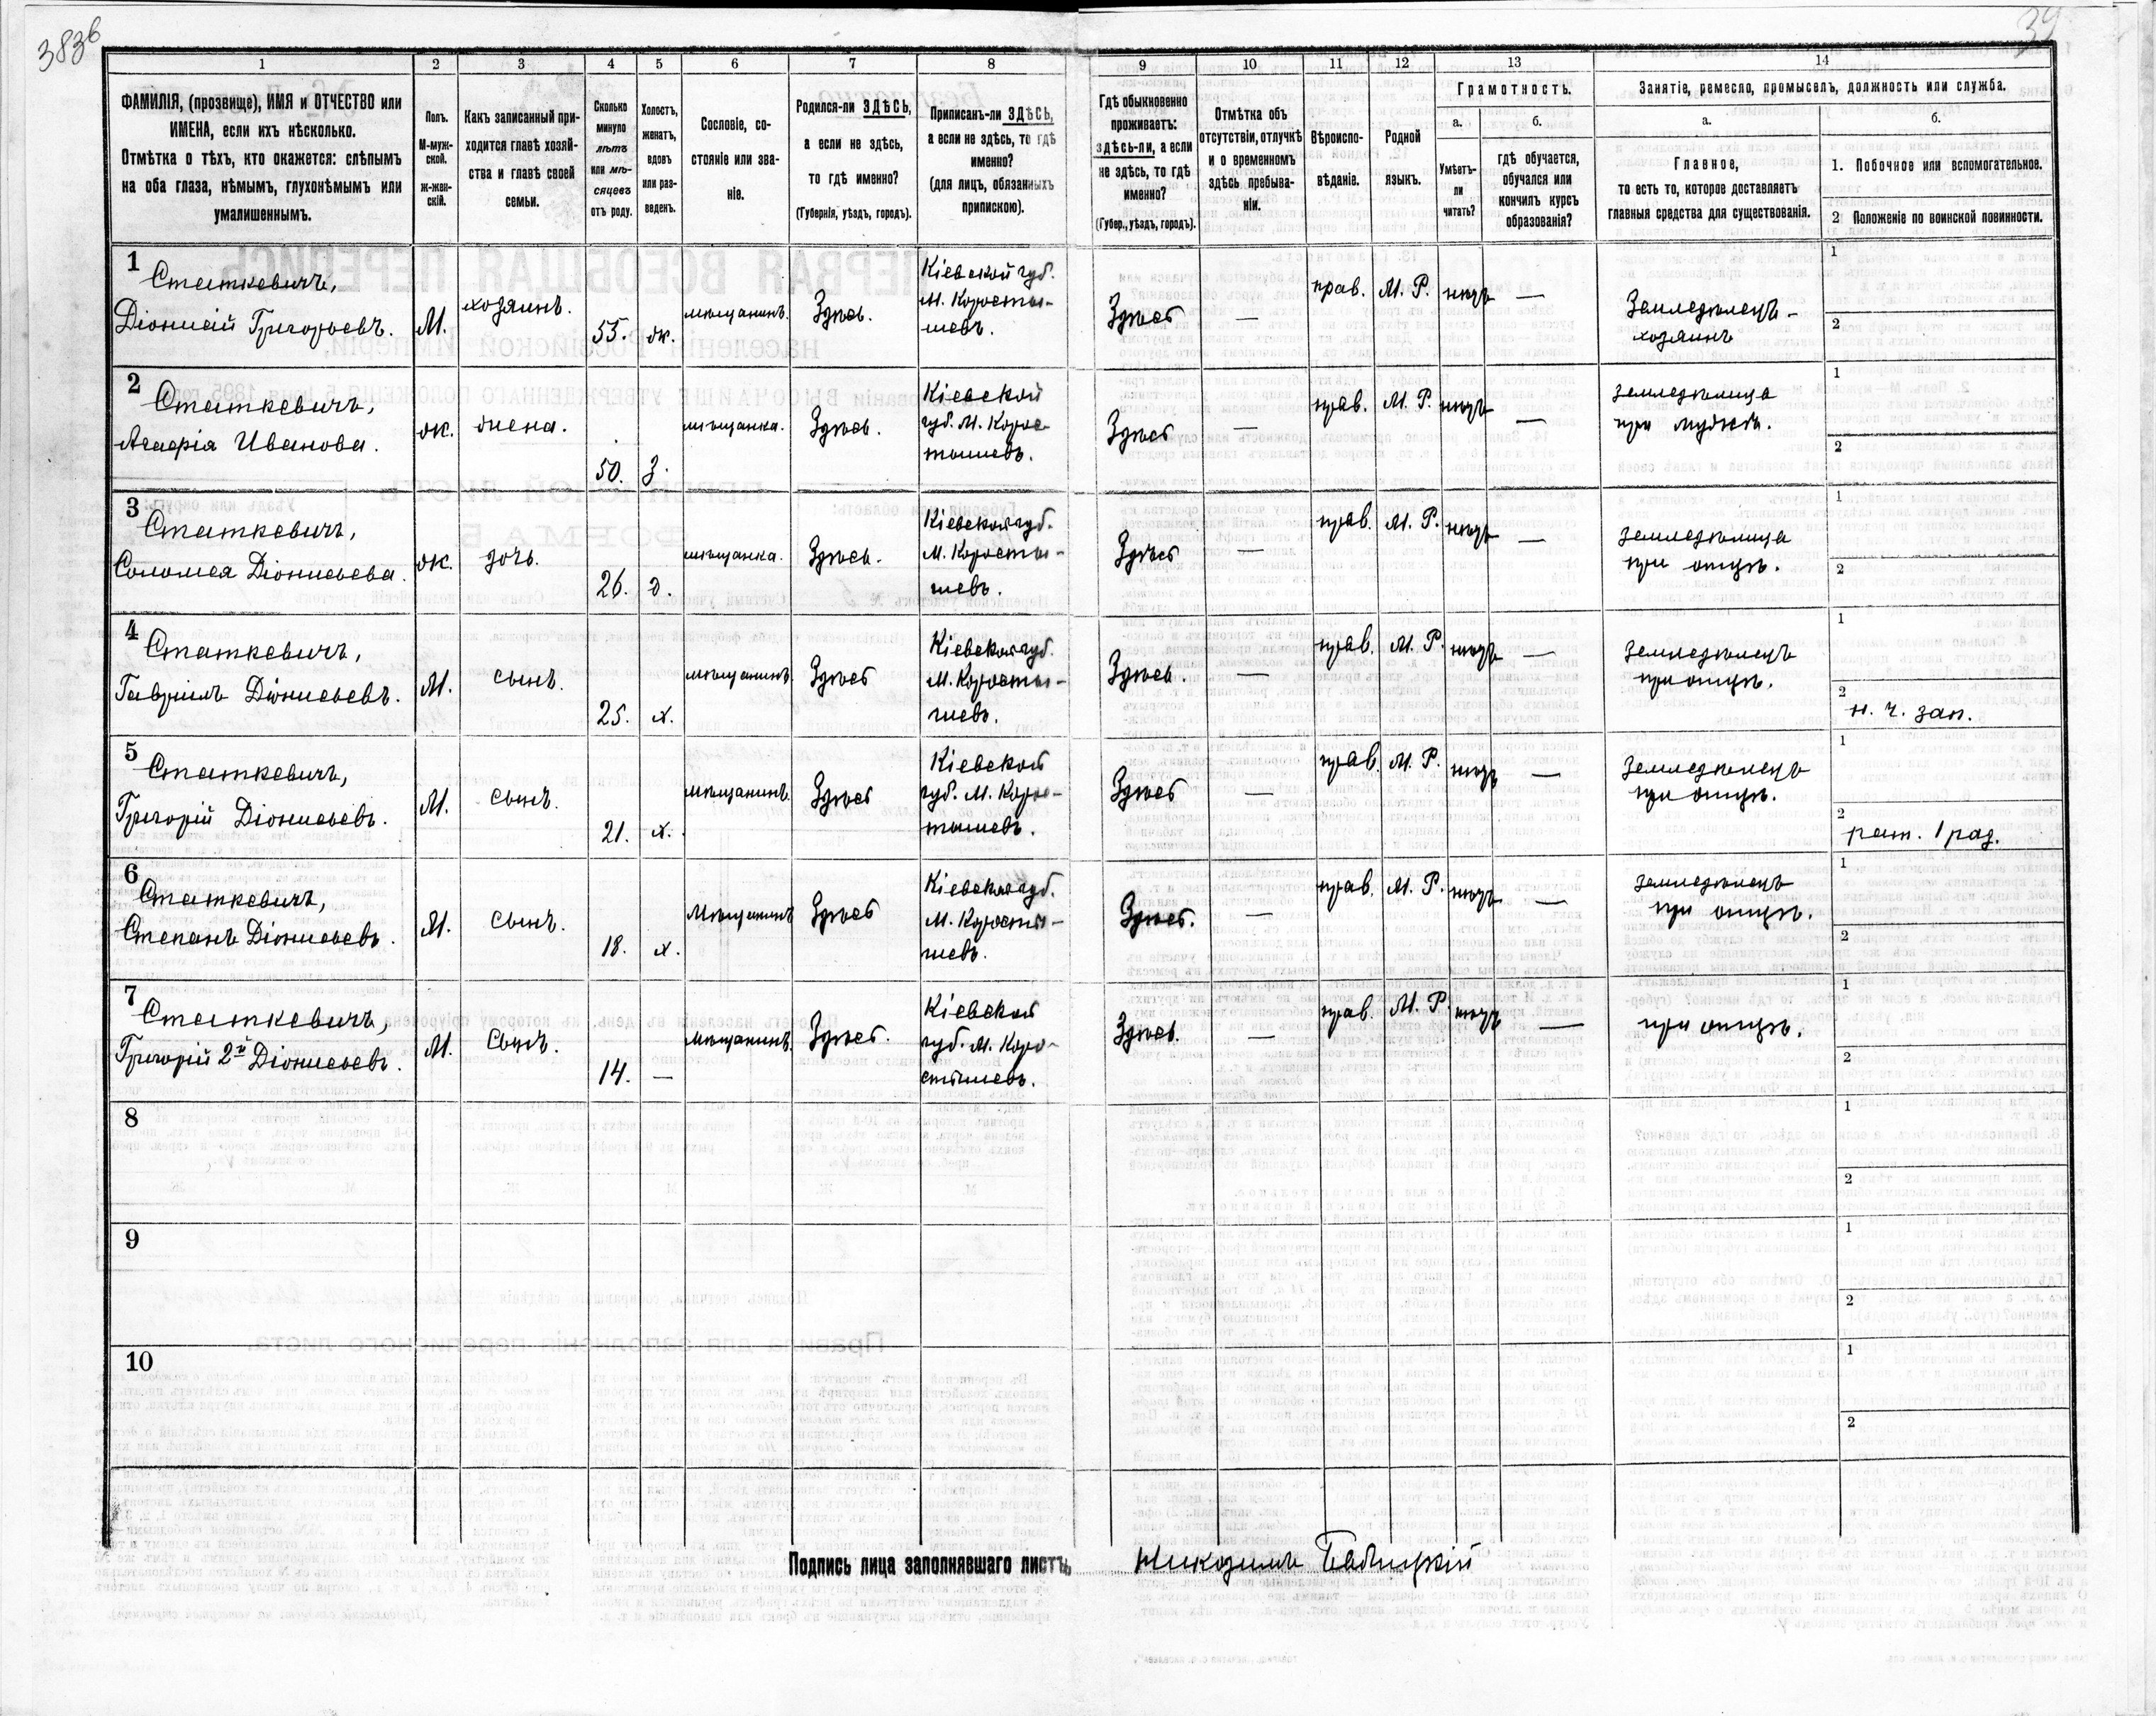 383б
39
1
2
3
4
5
6
7
8
9
10
11
12
13
14
ФАМИЛІЯ, (прозвище), ИМЯ и ОТЧЕСТВО или
ИМЕНА, если ихъ нѣсколько.
Отмѣтка о тѣхъ, кто окажется: слѣпымъ
на оба глаза, нѣмымъ, глухонѣмымъ или
умалишеннымъ.
Полъ.
М-муж-
ской.
ж-жен-
скій.
Какъ записанный при-
ходится главѣ хозяй-
ства и главѣ своей
семьи.
Сколько
минуло
лѣтъ
или мѣ-
сяцевъ
отъ роду.
Холостъ,
женатъ,
вдовъ
или раз-
веденъ.
Сословіе, со-
стояніе или зва-
ніе.
Родился-ли ЗДѢСЬ,
а если не здѣсь,
то гдѣ именно?
(Губернія, уѣздъ, городъ).
Приписанъ-ли ЗДѢСЬ,
а если не здѣсь, то гдѣ
именно?
(для лицъ, обязанныхъ
припискою).
Гдѣ обыкновенно
проживаетъ:
здѣсь-ли, а если
не здѣсь, то гдѣ
именно?
(Губер., уѣздъ, городъ).
Отмѣтка объ
отсутствіи, отлучкѣ
и о временномъ
здѣсь пребыва-
ніи.
Вѣроиспо-
вѣданіе.
Родной
языкъ.
Грамотность.
а.
Умѣетъ-
ли
читать?
б.
гдѣ обучается,
обучался или
кончилъ курсъ
образованія?
Занятіе, ремесло, промыселъ, должность или служба.
а.
Главное,
то есть то, которое доставляетъ
главныя средства для существованія.
б.
1. Побочное или вспомогательное.
2 Положеніе по воинской повинности.
1
Статкевичъ,
Діонисій Григорьевъ.
М.
хозяинъ.
55.
ж.
мѣщанинъ.
Здѣсь.
Кіевской губ.
М. Коросты-
шевъ.
Здѣсь
—
прав.
М. Р.
нѣтъ
—
Земледѣлецъ-
хозяинъ
1
2
2
Статкевичъ,
Агафія Иванова.
ж.
жена.
50.
З.
мѣщанка.
Здѣсь.
Кіевской
губ. М. Корос-
тышевъ.
Здѣсь
—
прав.
М. Р.
нѣтъ
—
земледѣлица
при мужѣ.
1
2
3
Статкевичъ,
Соломея Діонисьева.
ж.
дочь.
26.
д.
мѣщанка.
Здѣсь.
Кіевской губ.
М. Коросты-
шевъ.
Здѣсь
—
прав.
М. Р.
нѣтъ
—
земледѣлица
при отцѣ.
1
2
4
Статкевичъ,
Гавріилъ Діонисьевъ.
М.
сынъ.
25.
х.
мѣщанинъ.
Здѣсь
Кіевской губ.
М. Коросты-
шевъ.
Здѣсь.
—
прав.
М. Р.
нѣтъ
—
земледѣлецъ
при отцѣ.
1
2
н. ч. зап.
5
Статкевичъ,
Григорій Діонисьевъ.
М.
сынъ.
21.
х.
мѣщанинъ.
Здѣсь
Кіевской
губ. М. Корос-
тышевъ.
Здѣсь
—
прав.
М. Р.
нѣтъ
—
земледѣлецъ
при отцѣ.
1
2
рат. 1 раз.
6
Статкевичъ,
Степанъ Діонисьевъ.
М.
сынъ.
18.
х.
Мѣщанинъ
Здѣсь
Кіевской губ.
М. Коросты-
шевъ.
Здѣсь.
—
прав.
М. Р.
нѣтъ
—
земледѣлецъ
при отцѣ.
1
2
7
Статкевичъ,
Григорій 2й Діонисьевъ.
М.
Сынъ.
14.
—
Мѣщанинъ.
Здѣсь.
Кіевской
губ. М. Коро-
стышевъ.
Здѣсь.
—
прав.
М. Р.
нѣтъ
—
при отцѣ.
1
2
8
1
2
9
1
2
10
1
2
Подпись лица заполнявшаго листъ
Никодимъ